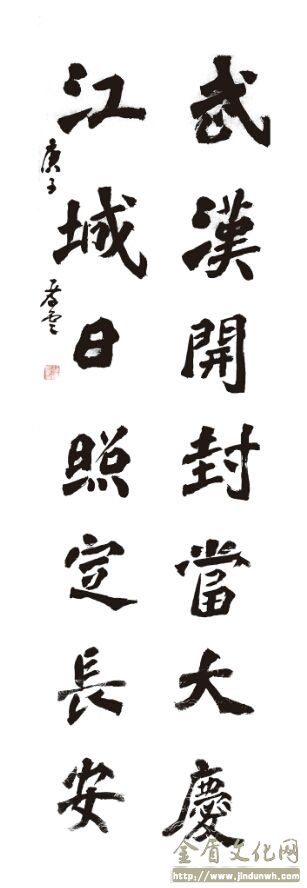 武漢開封當大慶
江城日照定長安
庚子
金盾文化网
http://www.jindunwh.com